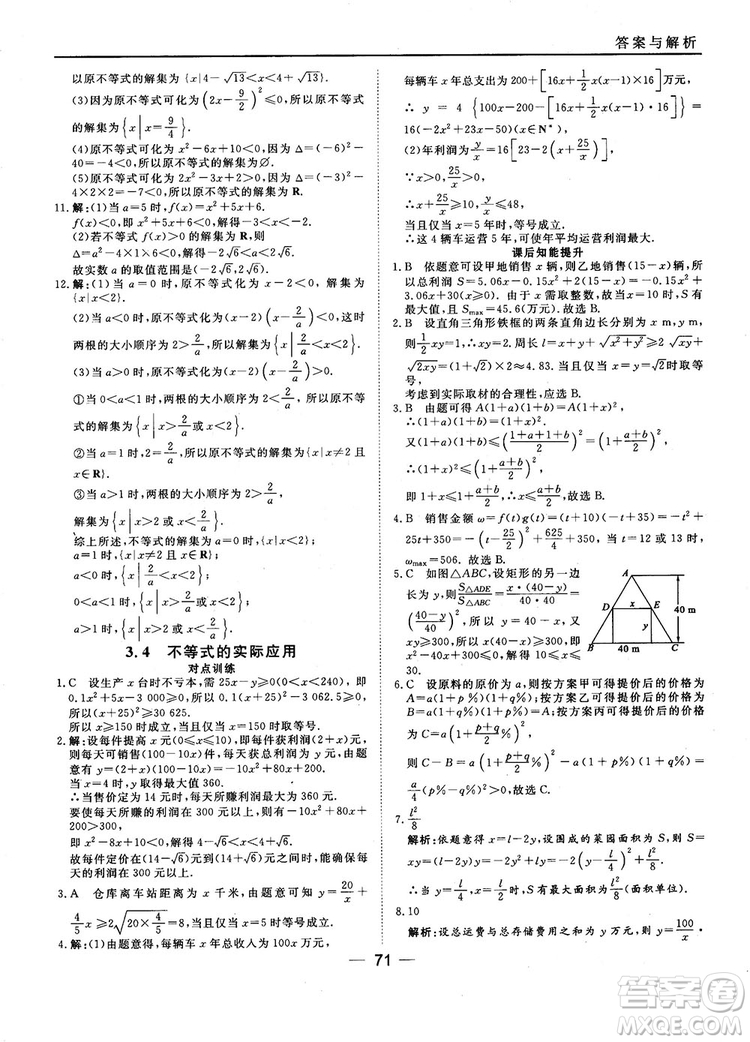 答案与解析
以原不等式的解集为{x|4-√13<x<4+√13}.
(3)因为原不等式可化为(2x-9/2)²≤0,所以原不等式
的解集为{x|x=9/4}.
(4)原不等式可化为x²-6x+10<0,因为Δ=(-6)²-
40=-4<0,所以原不等式的解集为∅.
(5)原不等式可化为2x²-4x+4>0,因为Δ=(-4)²-
4×2×4=-16<0,所以原不等式的解集为R.
11.解:(1)当a=5时,f(x)=x²+5x+6.
f(x)<0,即x²+5x+6<0,解得-3<x<-2.
(2)若不等式f(x)>0的解集为R,则有
Δ=a²-4×6<0,解得-2√6<a<2√6,
故实数a的取值范围是(-2√6,2√6).
12.解:(1)当a=0时,原不等式可化为x-2<0,所以解集为
{x|x<2}.
(2)当a<0时,原不等式化为(x-2)(x-2/a)>0,这时
两根的大小顺序为2>2/a,所以解集为{x|x<2/a或x>2}.
(3)当a>0时,原不等式化为(x-2)(x-2/a)>0.
①当0<a<1时,两根的大小顺序为2<2/a,所以原不等
式的解集为{x|x>2/a或x<2}.
②当a=1时,2=2/a,所以原不等式的解集为{x|x≠2且
x∈R}.
③当a>1时,两根的大小顺序为2>2/a,
解集为{x|x>2或x<2/a}.
综上所述,a=0时,{x|x<2};
a=1时,{x|x≠2且x∈R};
a<0时,{x|2/a<x<2};
0<a<1时,{x|x<2或x>2/a};
a>1时,{x|x<2/a或x>2}.
3.4 不等式的实际应用
对点训练
1.C 设生产x台时不亏本,需25x-y≥0(0<x<240),即
0.1x²+5x-3 000≥0,所以(x+25)²-3 062.5≥0,
所以(x+25)²≥30 625.
所以x≥150时成立.当x=150时取最大值.
2.解:设每件提高x元(0≤x≤10),即每件获利润(2+x)元,
则每天可销售(100-10x)件,每天获总利润为y元,由题
意有y=(2+x)(100-10x)=-10(x-4)²+360.
当x=4时,y取得最大值360.
∴当售价定为14元时,每天所赚利润最大为360元.
要使每天利润在300元以上,则有-10x²+80x+
200>300,
即x²-8x+10<0,解得4-√6<x<4+√6.
故每件定价在(14-√6)元到(14+√6)元之间时,能确保每
天的利润在300元以上.
3.A 仓库离车站距离为x千米,由题意可知y=20/x+
4/5x≥2√(20×4/5)=8,当且仅当x=5时,等号成立.
4.解:(1)由题意得,每辆车x年总收入为100x万元,
每辆车x年总支出为200+[16x+1/2x(x-1)×16]万元,
∴y=4{100x-200-[16x+1/2x(x-1)·16]}=
16(-2x²+23x-50)(x∈N*).
(2)年利润为y/x=16[23-2(x+25/x)],
∵x>0,∴25/x>0,
∴x+25/x≥10,∴y/x≤48,
当且仅当x=5年时,等号成立.
∴这4辆车运营5年,可使年平均运营利润最大.
课后知能提升
1.B 依题意可设甲地销售x辆,则乙地销售(15-x)辆,所
以总利润S=5.06x-0.15x²+2(15-x)=-0.15x²+
3.06x+30(x≥0).由于x需取整数,故当x=10时,S有
最大值,且Smax=45.6(万元),故选B.
2.B 设直角三角形铁框的两条直角边长分别为x m,y m,
则1/2xy=1,∴xy=2.周长l=x+y+√(x²+y²)≥2√(xy)+
√(2xy)=2√2+2=2(1+√2)≈4.83.当且仅当x=y=√2时,等号成立.
考虑到实际取材的合理性,应选B.
3.B 由题可得A(1+a)(1+b)=A(1+x)²,
∴(1+a)(1+b)=(1+x)²,
∵(1+a)(1+b)≤((1+a+1+b)/2)²,
∴(1+x)²≤(1+(a+b)/2)²,
即1+x≤1+(a+b)/2,∴x≤(a+b)/2,故选B.
4.B 销售金额ω=f(t)g(t)=(t+10)(-t+35)=-t²+
25t+350=-(t-25/2)²+625/4+350.当t=12或13时,
ωmax=506.故选B.
5.C 如图△ABC,设矩形的另一边
长为y,则S△ADE/S△ABC=x·(40-y)/(40·40)=
((40-y)/40)²,所以y=40-x,所以
xy≥300,即x(40-x)≥300,解得10≤x≤
30.
A
D
x
E
y
B
C
40 m
40 m
6.C 设原料的原价为a,则按方案甲可得提价后的价格为
A=a(1+p%)(1+q%);按方案乙可得提价后的价格为
B=a(1+p%)(1+q%);按方案丙可得提价后的价格为
C=a(1+(p+q)/2%)²,
则C-B=a(1+(p+q)/2%)²-a(1+p%)(1+q%)=
a/4(p%-q%)²>0,所以C>B=A.故选C.
7.l²/8
解析:依题意得x=l-2y,设围成的菜园面积为S,则S=
xy=(l-2y)y=-2y²+ly=-2(y-l/4)²+l²/8(0<y<l/2).
∴当y=l/4,x=l/2时,Smax=l²/8(面积单位).
8.10
解析:设总运费与总存储费用之和为y万元,则y=100/x·
71
答案圈
MXQE.COM